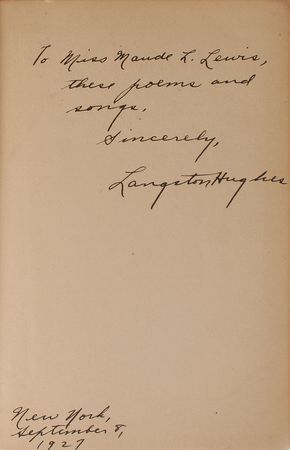 To Miss Maude L. Lewis,
these poems and
songs.
Sincerely,
Langston Hughes
New York,
September 8,
1927